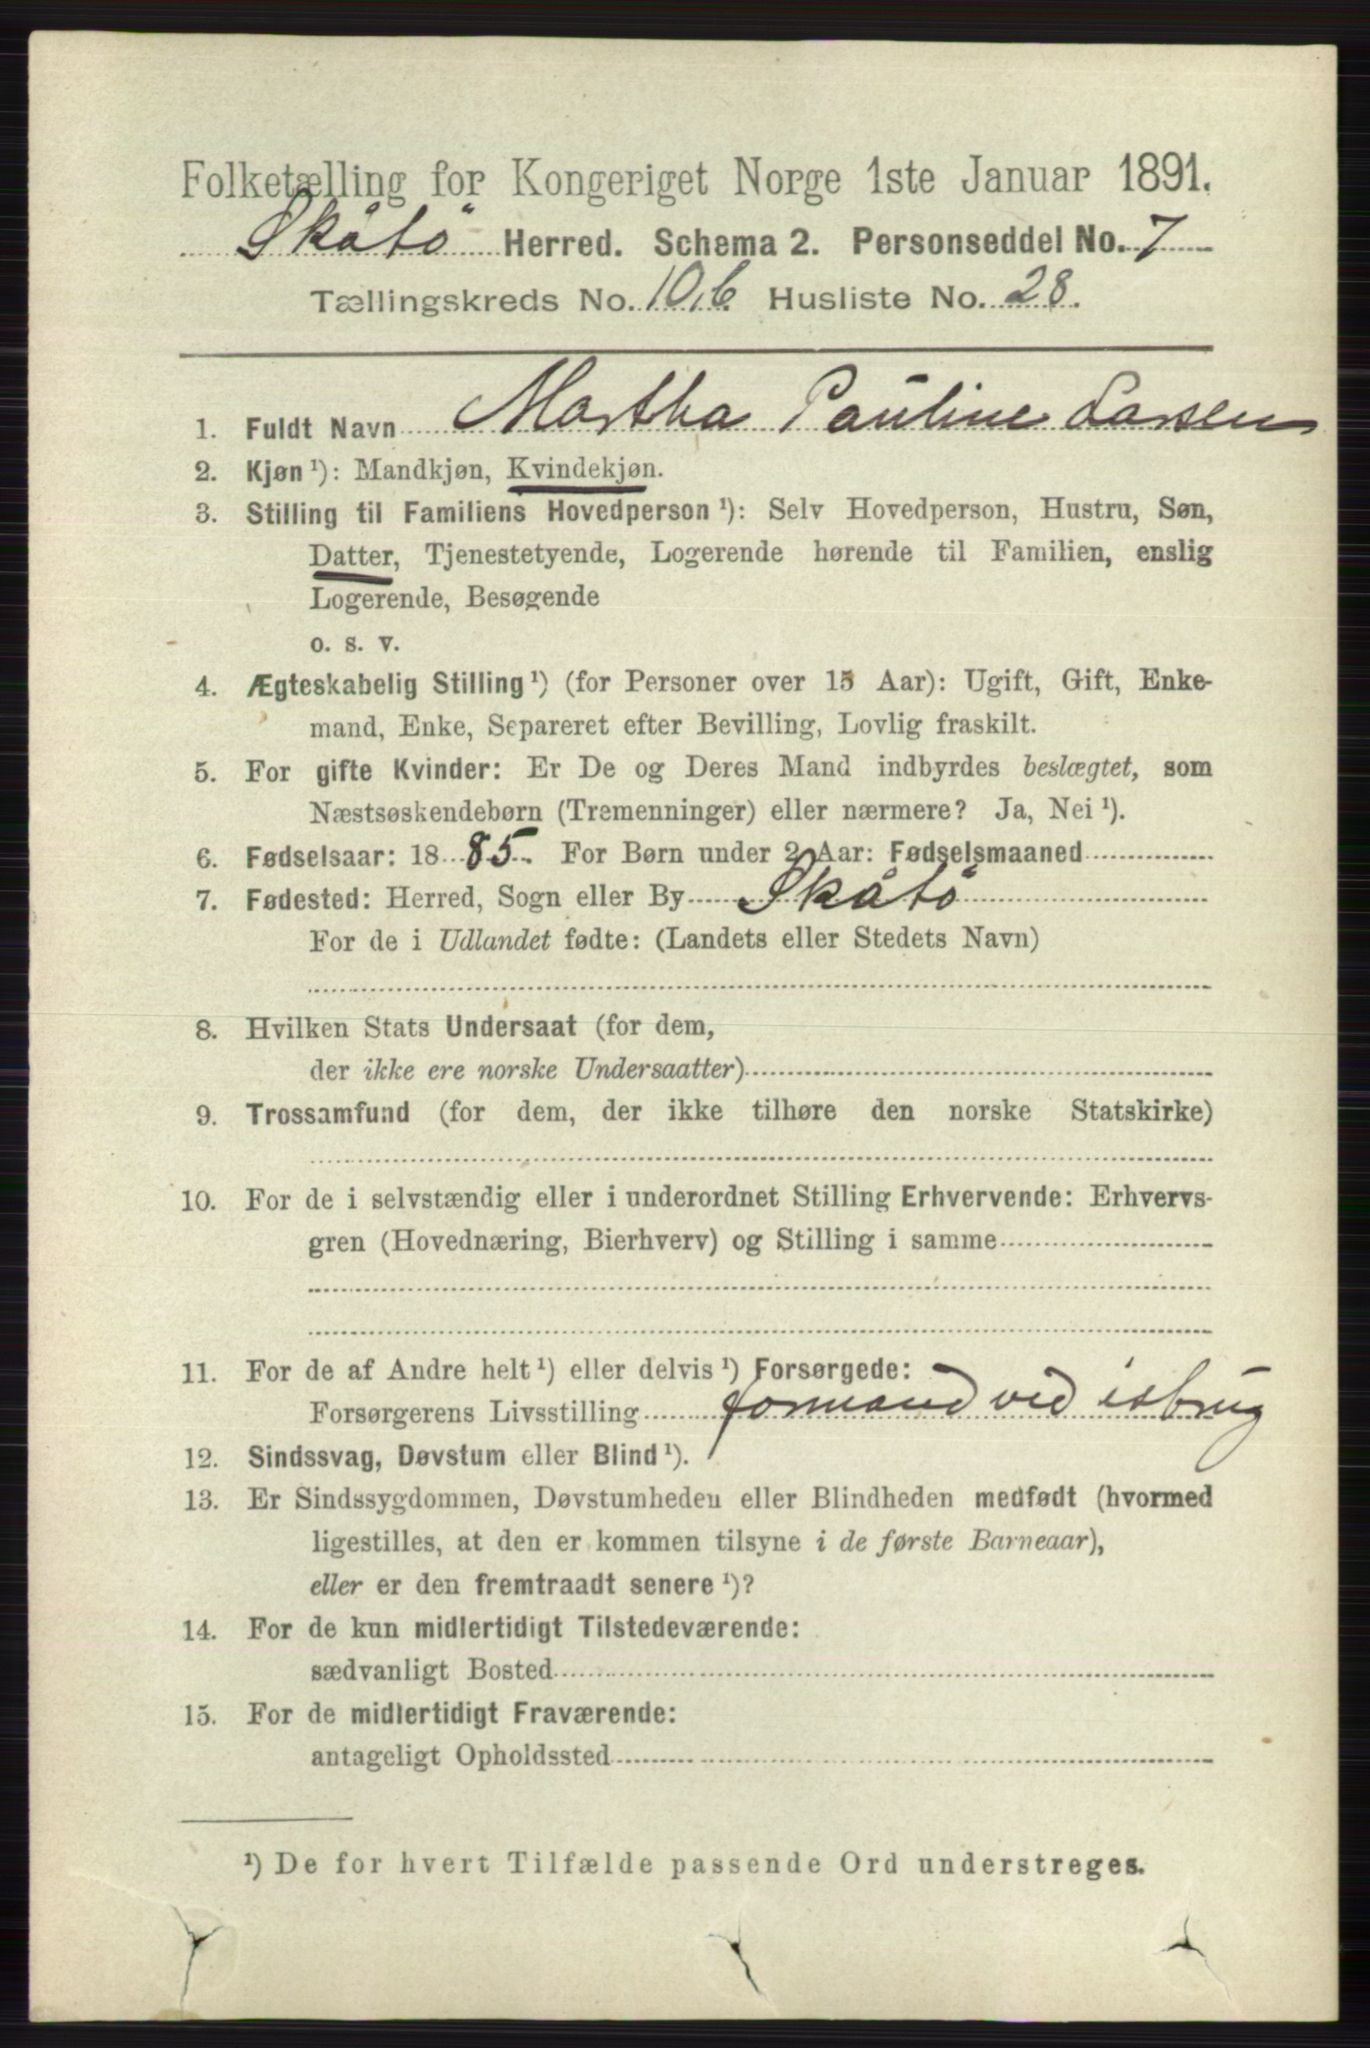 Folketælling for Kongeriget Norge 1ste Januar 1891.
Skåtö Herred. Schema 2. Personseddel No. 7
Tællingskreds No. 10,6 Husliste No. 28.
1. Fuldt Navn Martha Pauline Larsen
2. Kjøn¹): Mandkjøn, Kvindekjøn.
3. Stilling til Familiens Hovedperson¹): Selv Hovedperson, Hustru, Søn,
Datter, Tjenestetyende, Logerende hørende til Familien, enslig
Logerende, Besøgende
o. s. v.
4. Ægteskabelig Stilling¹) (for Personer over 15 Aar): Ugift, Gift, Enke-
mand, Enke, Separeret efter Bevilling, Lovlig fraskilt.
5. For gifte Kvinder: Er De og Deres Mand indbyrdes beslægtet, som
Næstsøskendebørn (Tremenninger) eller nærmere? Ja, Nei¹).
6. Fødselsaar: 1885. For Børn under 2 Aar: Fødselsmaaned
7. Fødested: Herred, Sogn eller By Skåtö
For de i Udlandet fødte: (Landets eller Stedets Navn)
8. Hvilken Stats Undersaat (for dem,
der ikke ere norske Undersaatter)
9. Trossamfund (for dem, der ikke tilhøre den norske Statskirke)
10. For de i selvstændig eller i underordnet Stilling Erhvervende: Erhvervs-
gren (Hovednæring, Bierhverv) og Stilling i samme
11. For de af Andre helt¹) eller delvis¹) Forsørgede:
Forsørgerens Livsstilling formand ved isbrug
12. Sindssvag, Døvstum eller Blind¹).
13. Er Sindssygdommen, Døvstumheden eller Blindheden medfødt (hvormed
ligestilles, at den er kommen tilsyne i de første Barneaar),
eller er den fremtraadt senere¹)?
14. For de kun midlertidigt Tilstedeværende:
sædvanligt Bosted
15. For de midlertidigt Fraværende:
antageligt Opholdssted
¹) De for hvert Tilfælde passende Ord understreges.